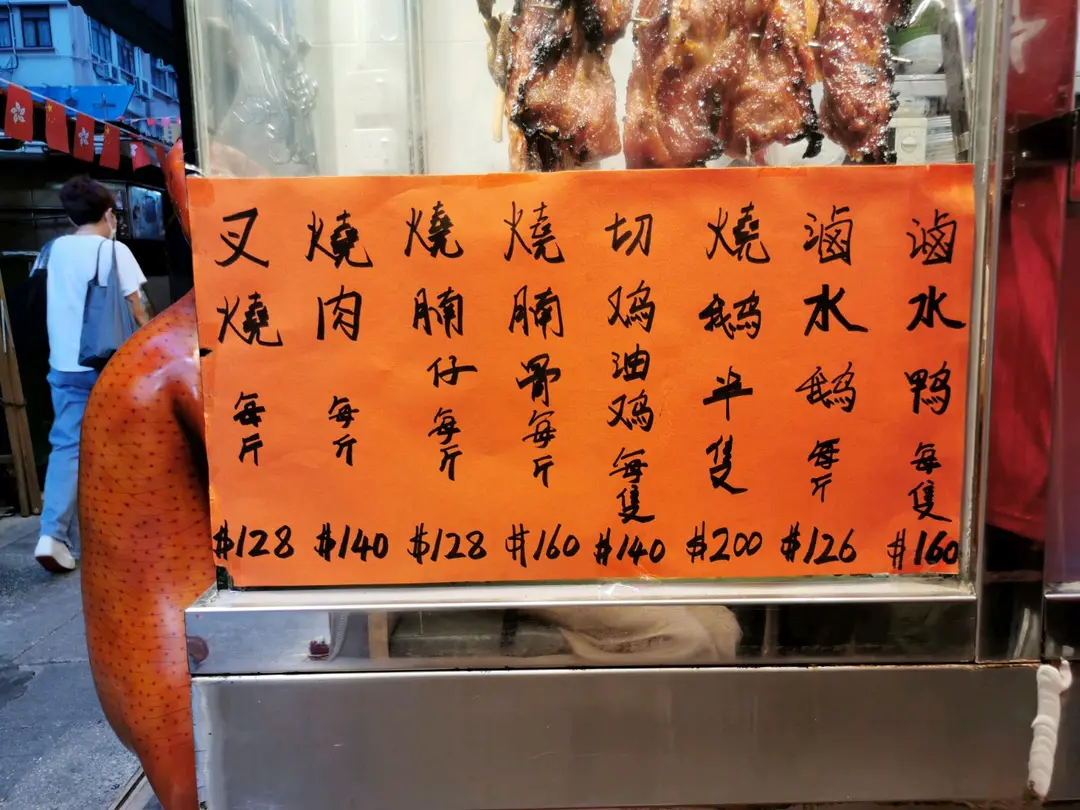 叉燒 每斤 $128
燒肉 每斤 $140
燒腩仔 每斤 $128
燒腩骨 每斤 $160
切鸡油鸡 每隻 $140
燒鹅半隻 $200
滷水鹅 每斤 $126
滷水鸭 每隻 $160